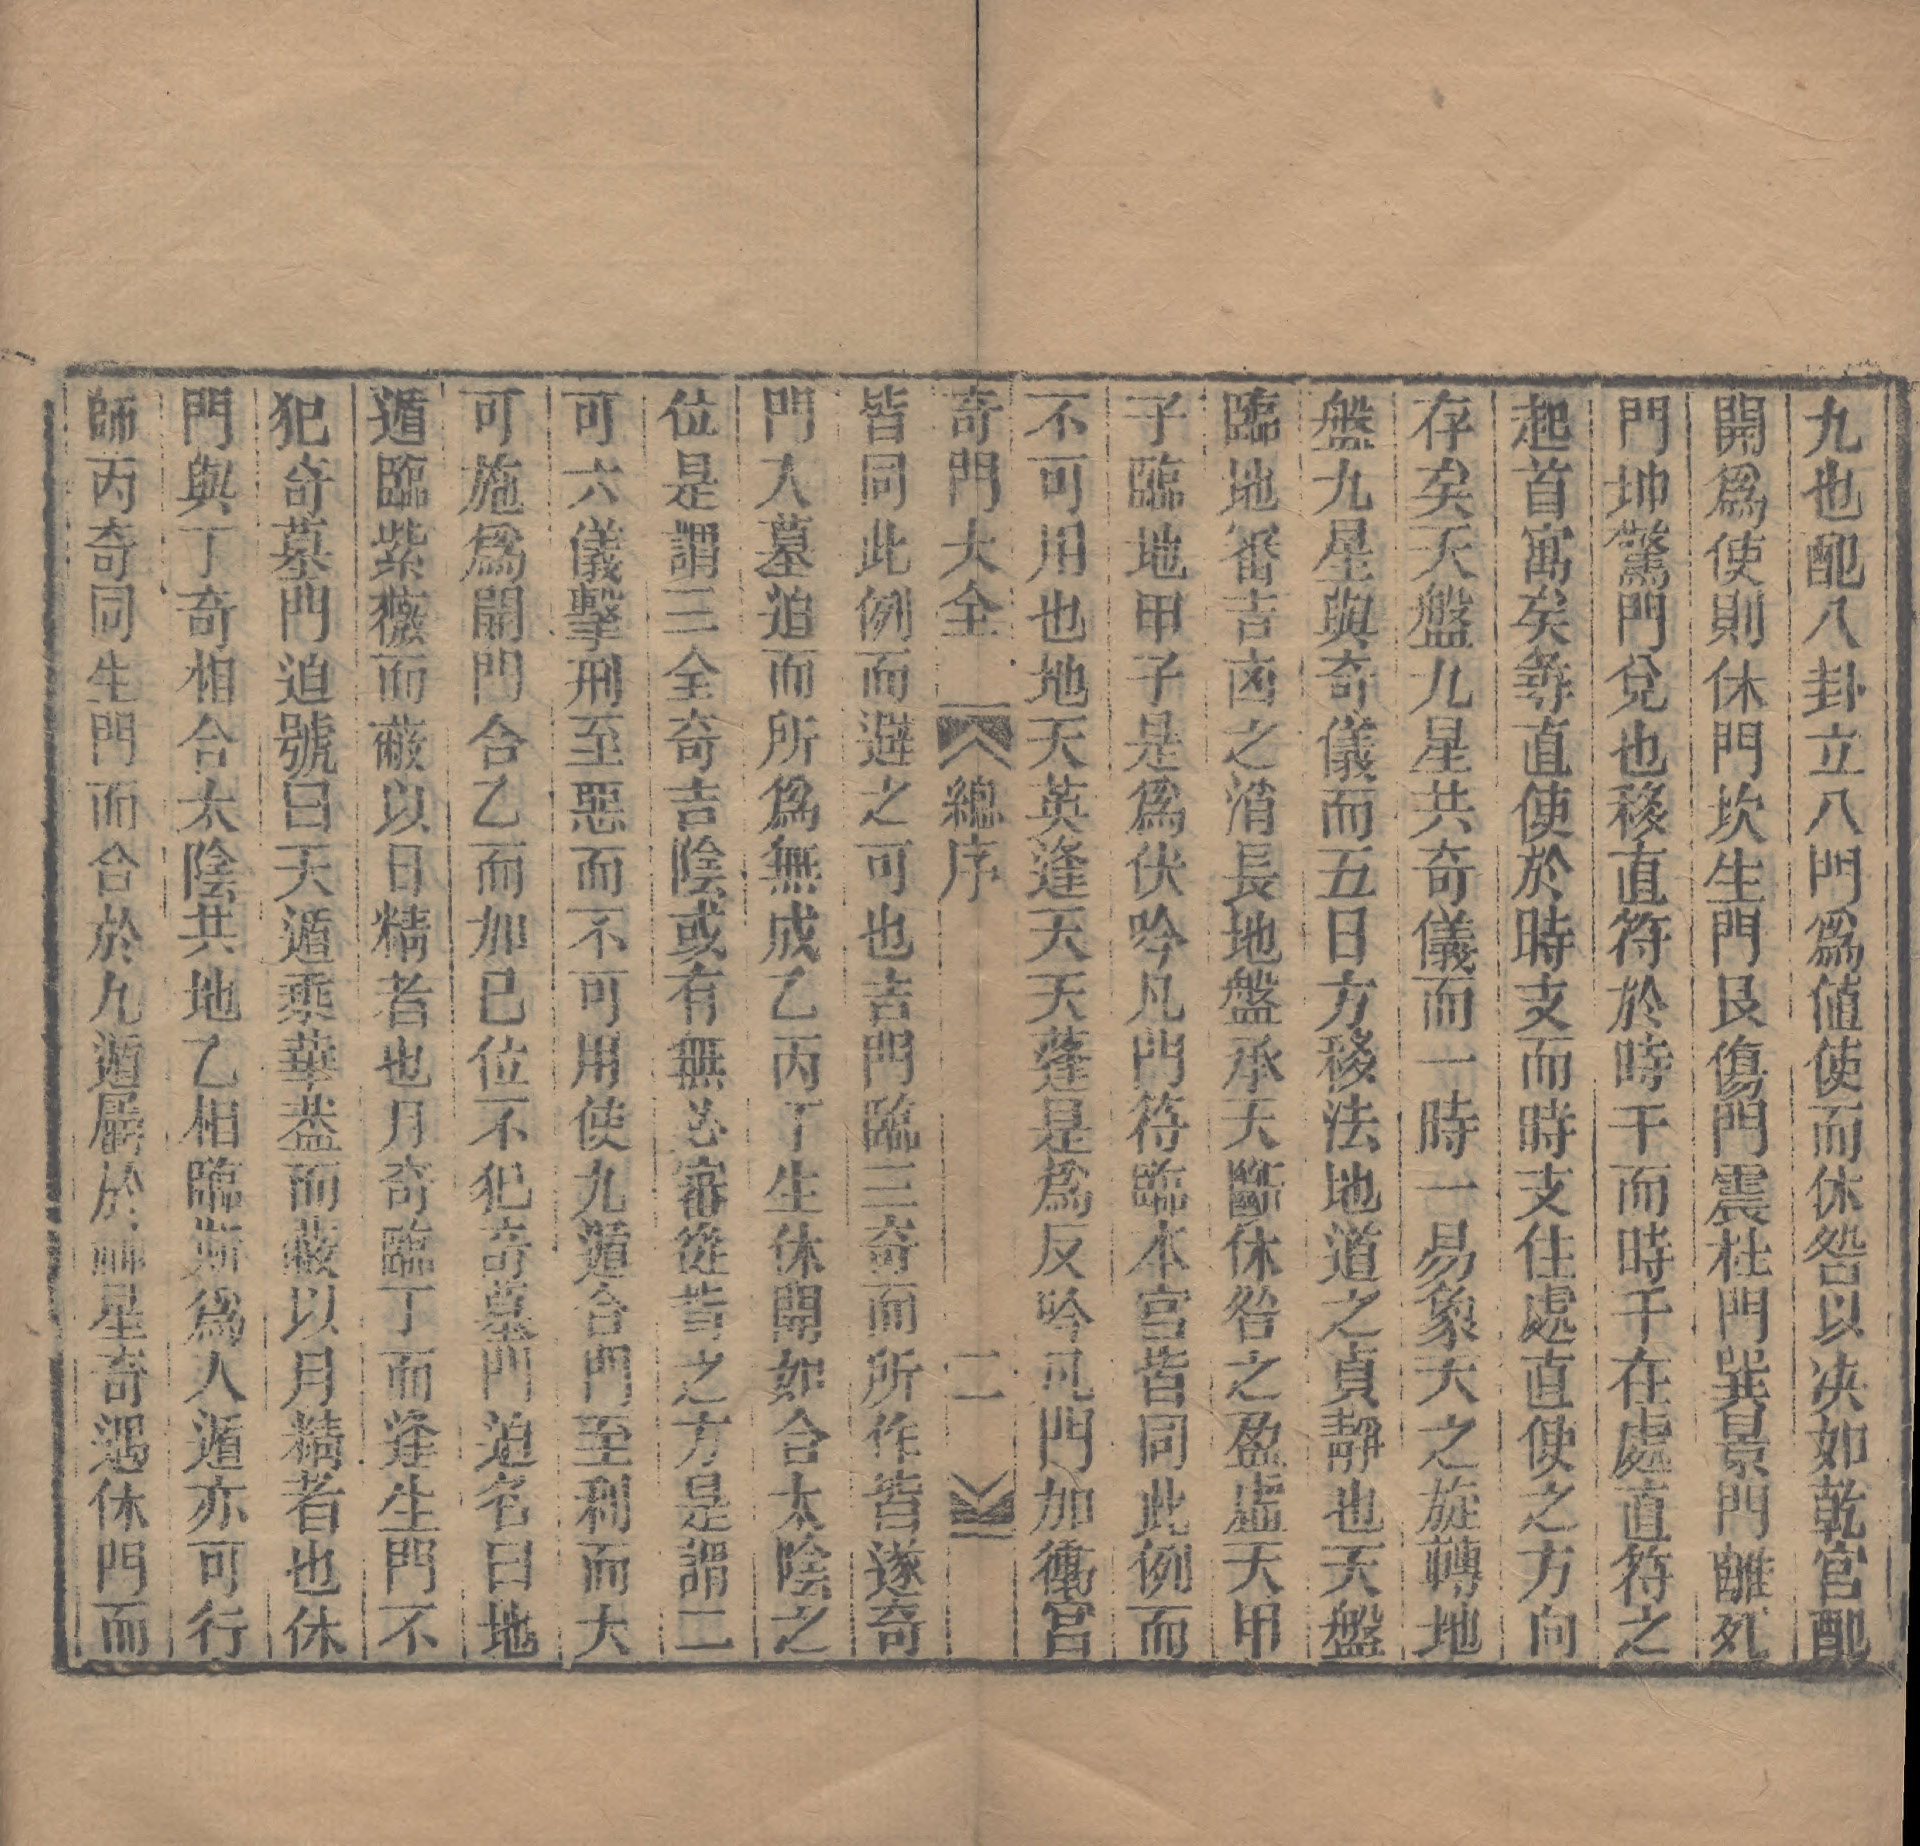 九也配八卦立八門爲値使而休咎以决如乾宮配
開爲使則休門坎生門艮傷門震杜門巽景門離死
門坤驚門兌也移直符於時干而時干在處直符之
起首寓矣尋直使於時支而時支住處直使之方向
存矣天盤九星共奇儀而一時一易象天之旋轉地
盤九星與奇儀而五日方移法地道之貞靜也天盤
臨地審吉凶之消長地盤承天斷休咎之盈虛天甲
子臨地甲子是爲伏吟凡門符臨本宮皆同此例而
不可用也地天英逢天天蓬是爲反吟凡門加衝宮
奇門大全 總序 二
皆同此例而避之可也吉門臨三奇而所作皆遂奇
門入墓迫而所爲無成乙丙丁生休開如合太陰之
位是謂三全奇吉陰或有無必審從皆之方是謂二
可六儀擊刑至惡而不可用使九遁合門至利而大
可施爲開門合乙而加巳位不犯奇墓門迫名曰地
遁臨紫薇而蔽以日精者也月奇臨丁而逢生門不
犯奇墓門迫號曰天遁乘華蓋而蔽以月精者也休
門與丁奇相合太陰共地乙相臨斯爲人遁亦可行
師丙奇同生門而合於九遁屬於神星奇遇休門而